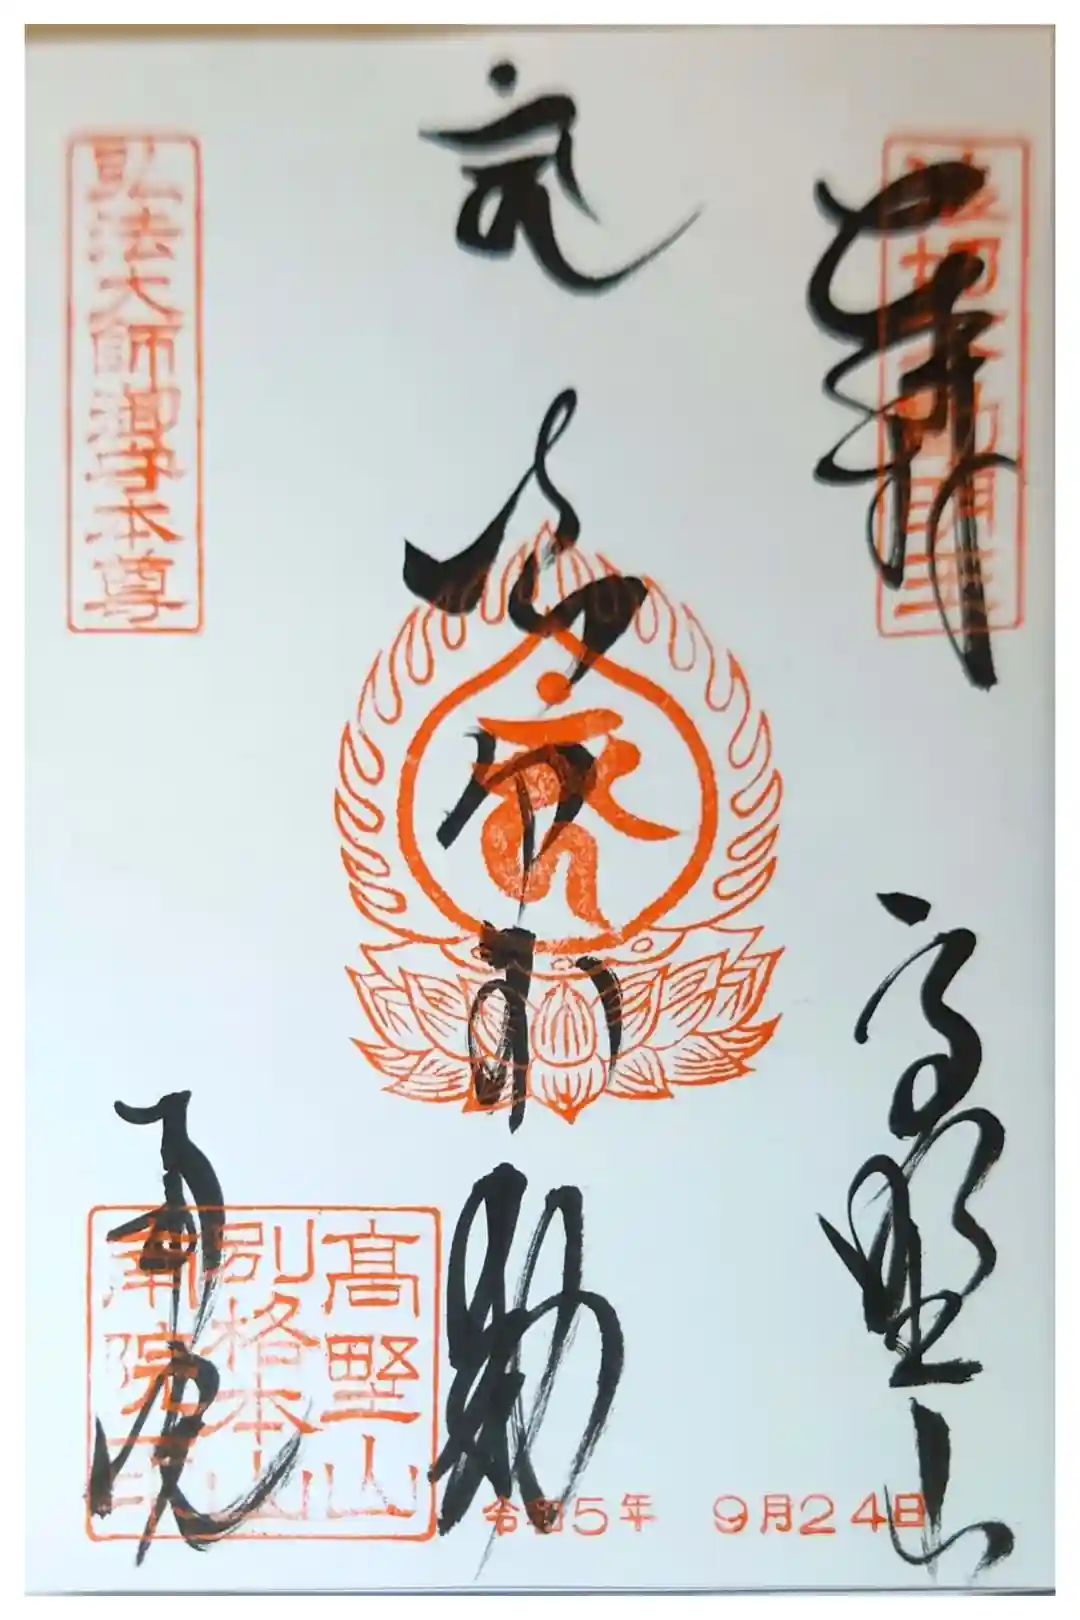 奉拝
浪切不動明王
高野山
弘法大師御守本尊
南院
髙野山
別格本山
南院
令和5年 9月24日